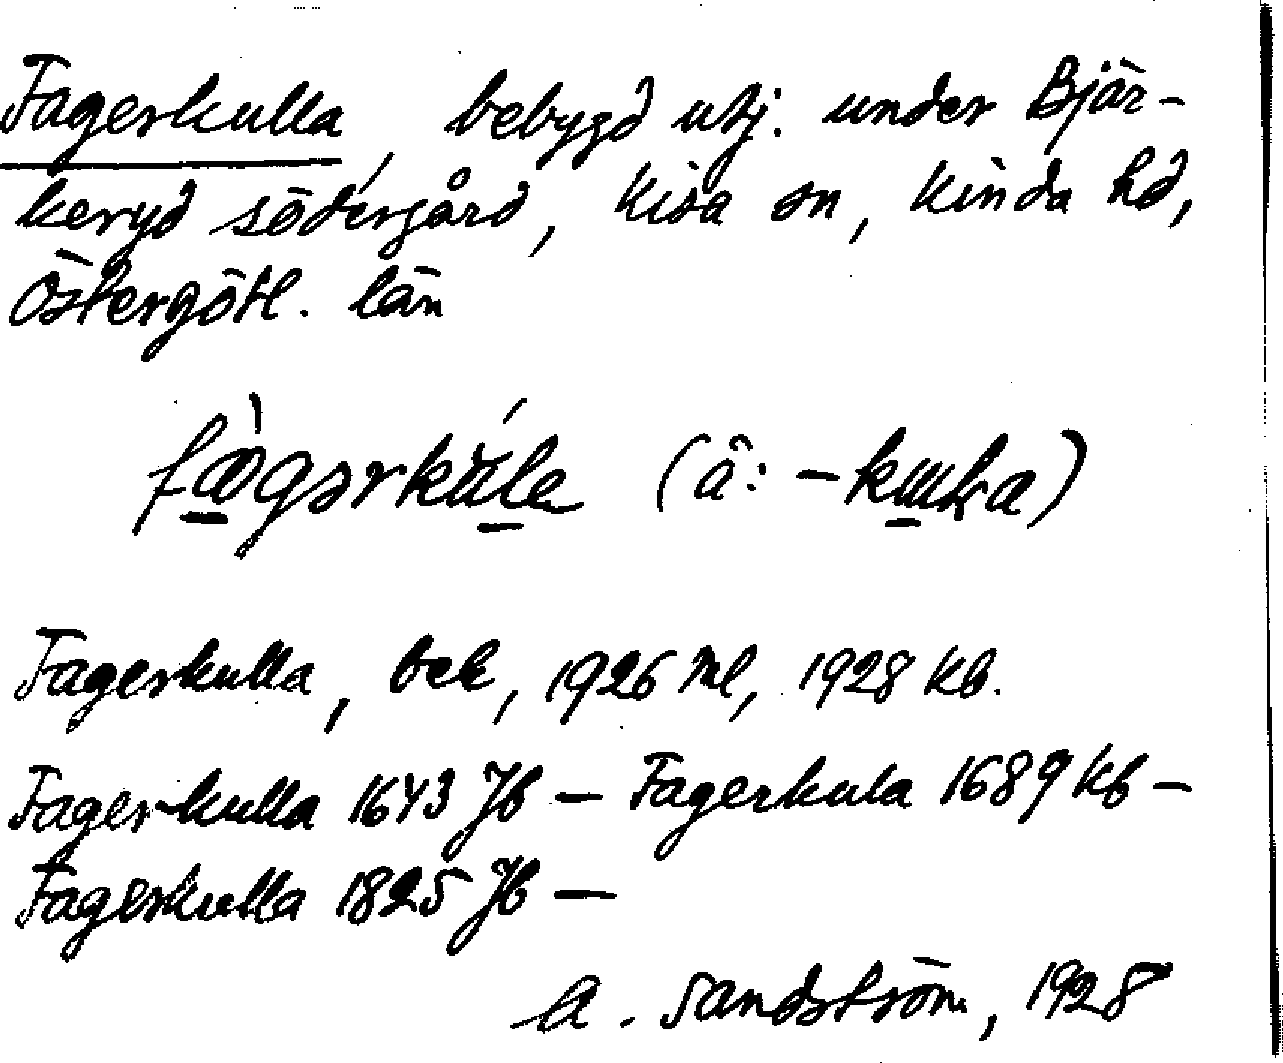 Fagerkulla, bebygd utj. under Bjär-
keryd södergård, Kisa sn, Kinda hd,
Östergötl. län
(ä: -
Fagerkulla, beb, 1926 Ml, 1928 Kb.
Fagerkulla 1643 Jb — Fagerkula 1689 Kb —
Fagerkulla 1825 Jb —
A. Sandström, 1928